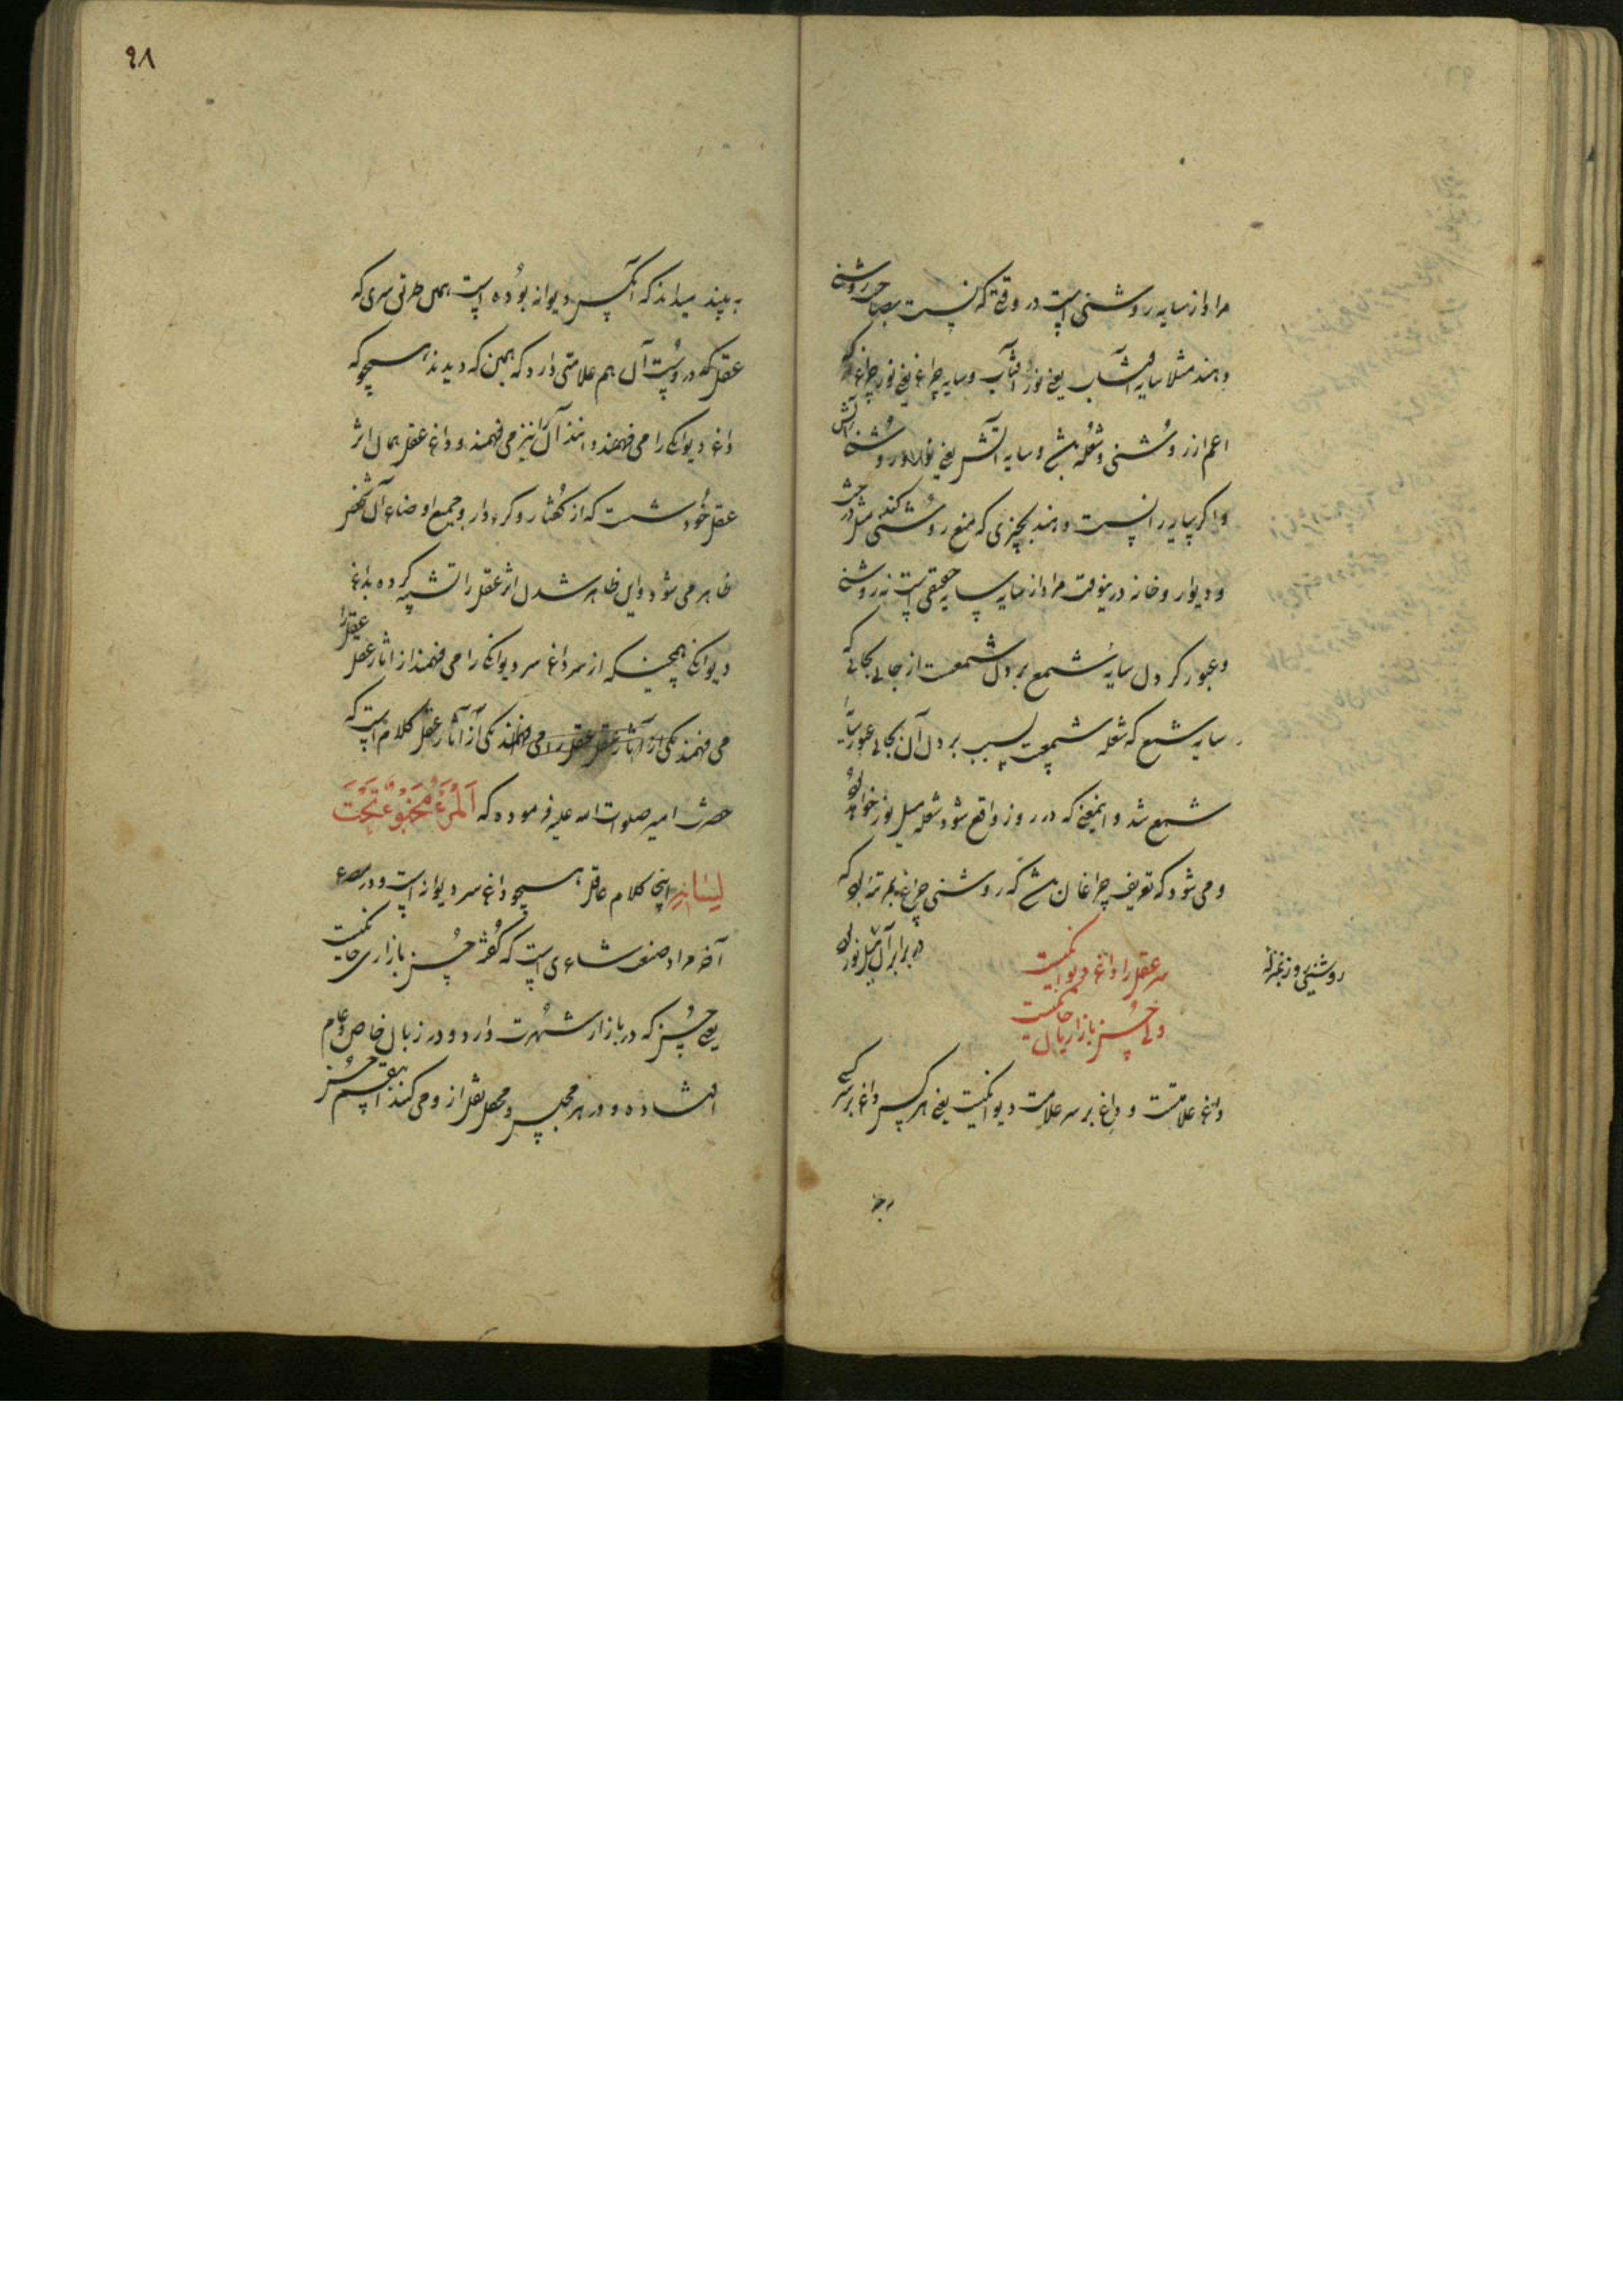 مراد از سایه روشنی است در وقتی که نسبت بصاحب روشنی
دهند مثلا سایه آفتاب یعنی نور آفتاب و سایه چراغ یعنی نور چراغ که
اعم از روشنی و شعله باشد و سایه آتش یعنی نور و روشنی آتش
و اگر سایه را نسبت دهند بچیزی که منع روشنی کند مثل درخت
و دیوار و خانه درینوقت مراد از سایه سایه حقیقی است نه روشنی
و عبور کردن سایه شمع بردن شمعست از جایی بجایی که
سایه شمع که شعله شمعست بسبب بردن آن بجایی عبور سایه
شمع شد و اینمعنی که در روز واقع شود شعله میل نور خواهد بود
و می شود که تعریف چراغان باشد که روشنی چراغ بمرتبه بود که
روشنی روز بمنزله
در برابر آن میل نور بود
سر عقل را داغ دیوانگیست
ولی حسن بازاریان خانگیست
داغ علامتست و داغ بر سر علامت دیوانگیست یعنی هر کس داغ بر سر کسی
به بیند
۹۸
به بیند میداند که آنکس دیوانه بوده است همان طریق سری که
عقل که در اوست آن هم علامتی دارد که همین که دیدند همچو که
داغ دیوانگی را می فهمند آن را نیز می فهمند و داغ عقل همان اثر
عقل خودست که از گفتار و کردار و جمیع اوضاع آن شخص
ظاهر می شود و این ظاهر شدن اثر عقل را تشبیه کرده بداغ
دیوانگی همچنینکه از سر داغ سر دیوانگی را می فهمند از آثار عقل عقل را
می فهمند یکی از آثار عقل عقل را می فهمند یکی از آثار عقل کلام است که
حضرت امیر صلوات الله علیه فرموده که اَلْمَرْءُ مَخْبُوءٌ تَحْتَ
لِسَانِهِ اینجا کلام عاقل همچو داغ سر دیوانه است و در مصرع
آخر مراد صنف شاعری است که گفته حسن بازاری خانگیست
یعنی حسنی که در بازار شهرت دارد و در زبان خاص و عام
افتاده و در هر مجلس و محفل نقل از و می کنند اینقسم حسن